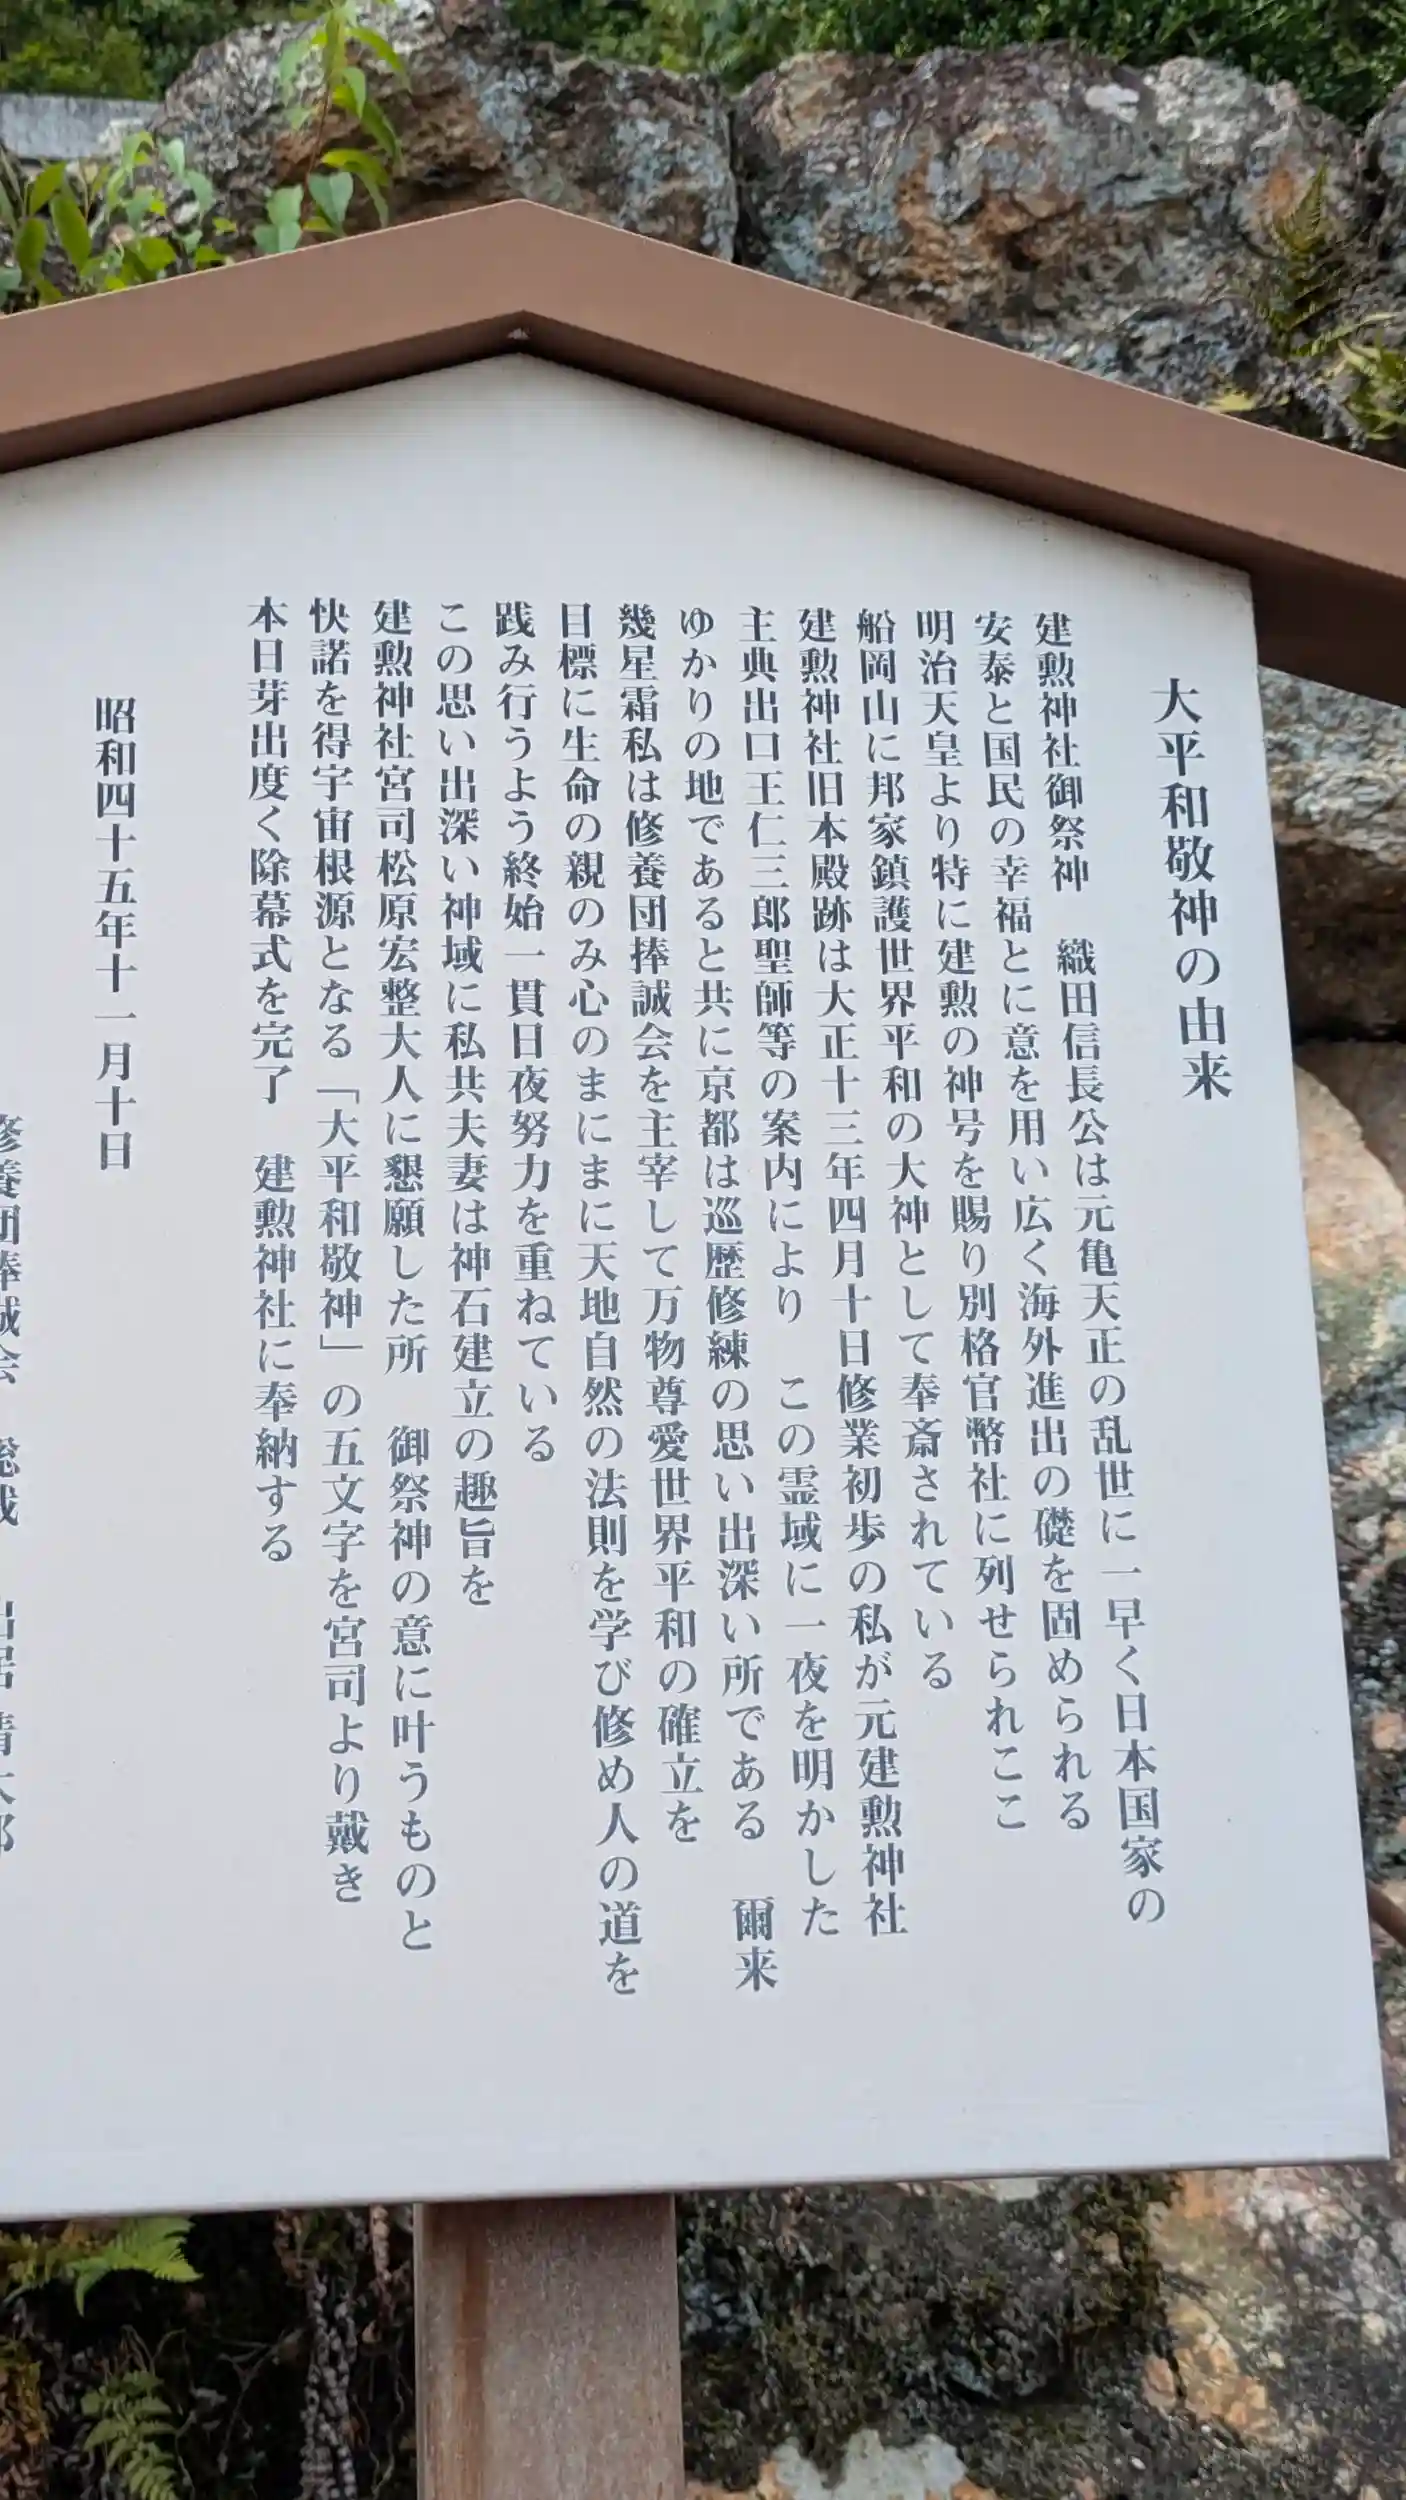 大平和敬神の由来
建勲神社御祭神　織田信長公は元亀天正の乱世に一早く日本国家の
安泰と国民の幸福とに意を用い広く海外進出の礎を固められる
明治天皇より特に建勲の神号を賜り別格官幣社に列せられここ
船岡山に邦家鎮護世界平和の大神として奉斎されている
建勲神社旧本殿跡は大正十三年四月十日修業初歩の私が元建勲神社
主典出口王仁三郎聖師等の案内により　この霊域に一夜を明かした
ゆかりの地であると共に京都は巡歴修練の思い出深い所である　爾来
幾星霜私は修養団捧誠会を主宰して万物尊愛世界平和の確立を
目標に生命の親のみ心のまにまに天地自然の法則を学び修め人の道を
践み行うよう終始一貫日夜努力を重ねている
この思い出深い神域に私共夫妻は神石建立の趣旨を
建勲神社宮司松原宏整大人に懇願した所　御祭神の意に叶うものと
快諾を得宇宙根源となる「大平和敬神」の五文字を宮司より戴き
本日芽出度く除幕式を完了　建勲神社に奉納する
昭和四十五年十一月十日
修養団捧誠会　総裁　出居　清太郎